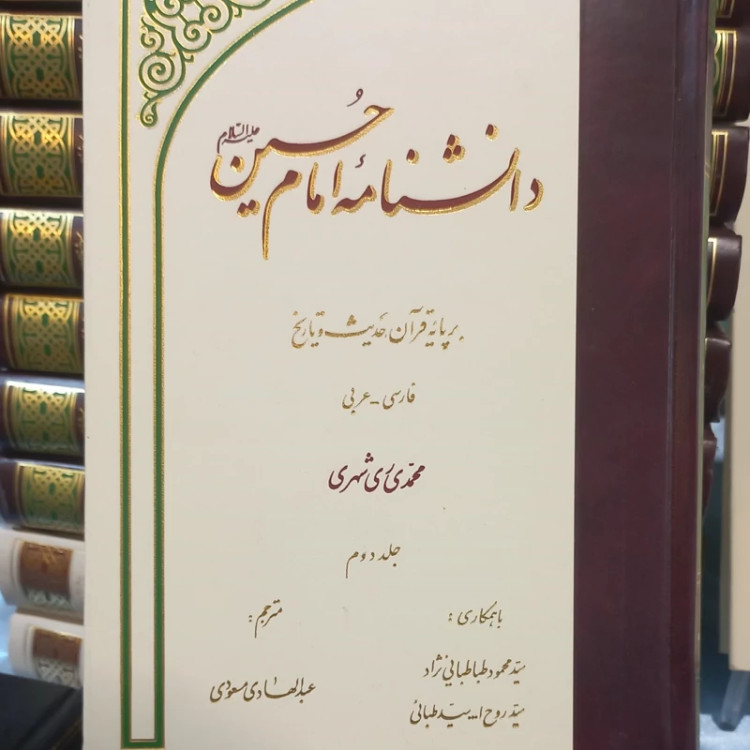 دانشنامهٔ امام حسین علیه السلام
بر پایهٔ قرآن، حدیث و تاریخ
فارسی - عربی
محمدی ری شهری
جلد دوم
با همکاری:
سید محمود طباطبائی نژاد
سید روح الله سید طبائی
مترجم:
عبدالهادی مسعودی